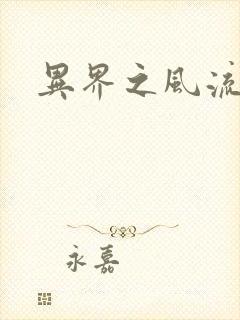 異界之風流
永嘉